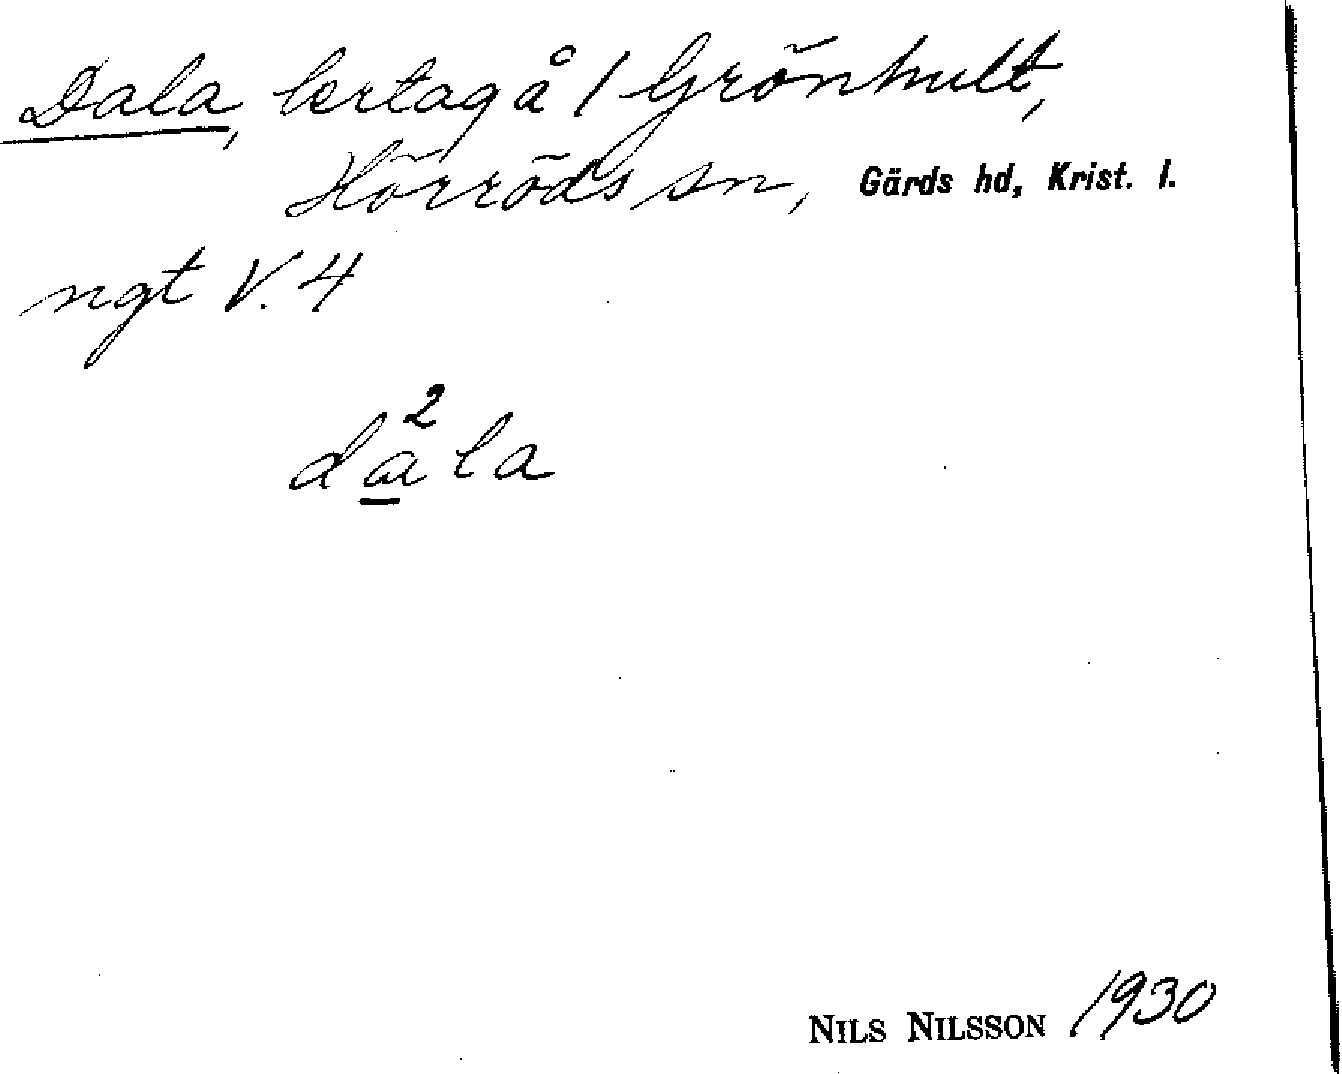 Dala, lertag å / Grönhult,
Hörröds sn, Gärds hd, Krist. l.
ngt V. 4
da²la
NILS NILSSON 1930